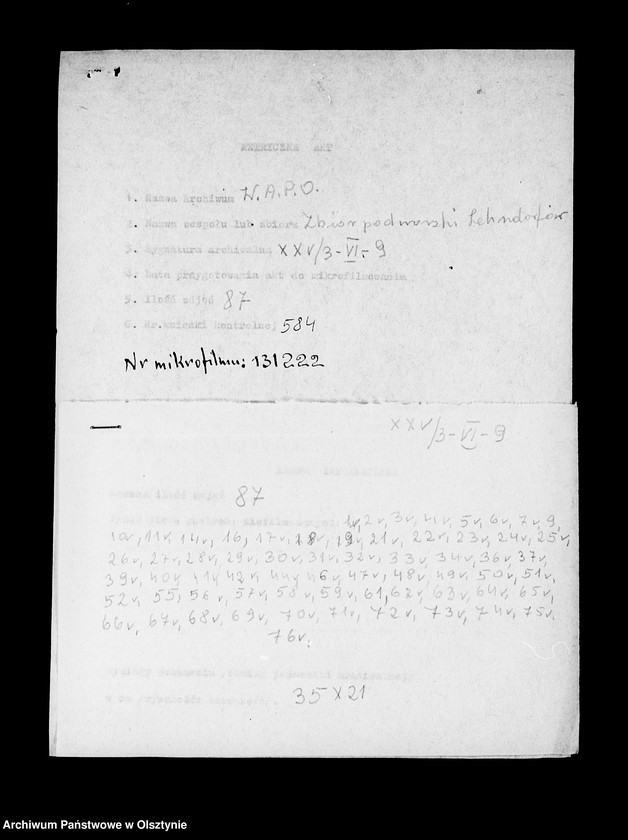 METRYCZKA AKT
1. Nazwa Archiwum W.A.P.O.
2. Nazwa zespołu lub zbioru Zbiór podworski Lehndorfów
3. Sygnatura archiwalna XXV/3-VI-9
4. Data przygotowania akt do mikrofilmowania
5. Ilość zdjęć 87
6. Nr.książki kontrolnej 584
Nr mikrofilmu: 131222
XXV/3-VI-9
ilość zdjęć 87
1v, 2v, 3v, 4v, 5v, 6v, 7v, 9,
10v, 11v, 14v, 16, 17v, 18v, 19v, 21v, 22v, 23v, 24v, 25v,
26v, 27v, 28v, 29v, 30v, 31v, 32v, 33v, 34v, 36v, 37v,
39v, 40v, 41v, 42v, 44v, 46v, 47v, 48v, 49v, 50v, 51v,
52v, 55, 56v, 57v, 58v, 59v, 61, 62v, 63v, 64v, 65v,
66v, 67v, 68v, 69v, 70v, 71v, 72v, 73v, 74v, 75v,
76v.
35 X 21
Archiwum Państwowe w Olsztynie